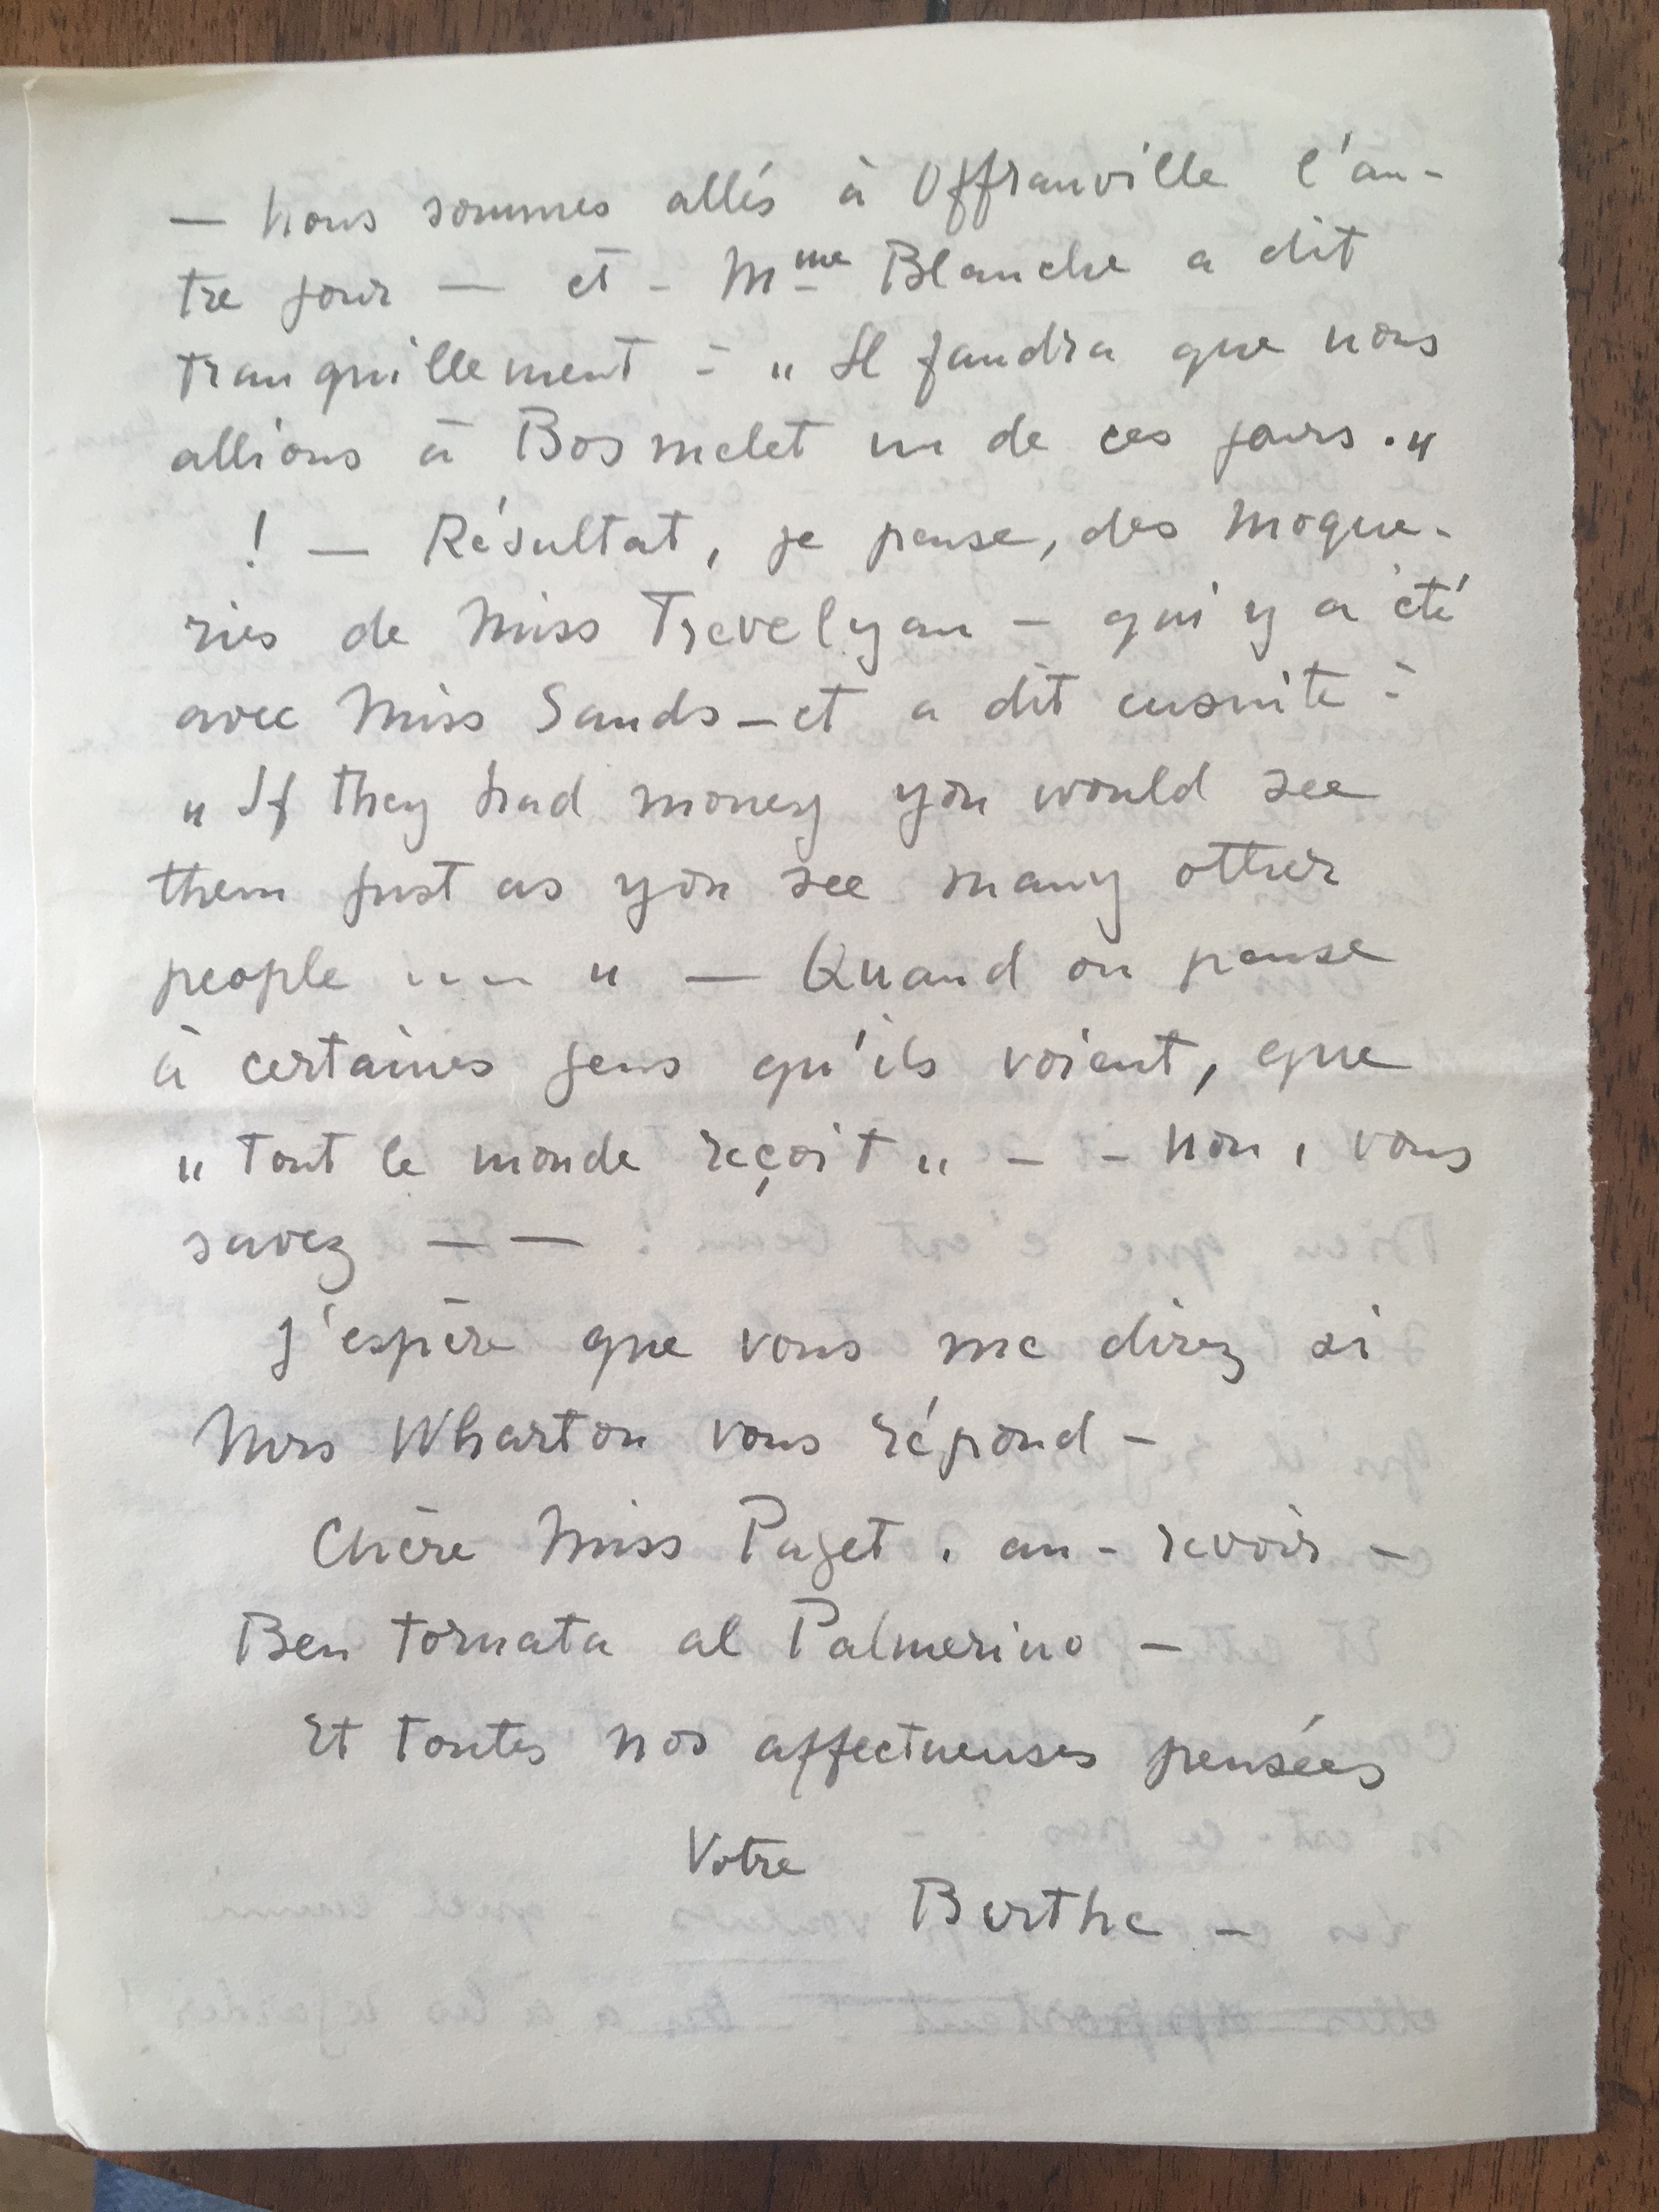 — Nous sommes allés à Offranville l'au-
tre jour — et - Mme Blanche a dit
tranquillement : „ Il faudra que nous
allions à Bosmelet un de ces jours . „
! — Résultat, je pense, des moque-
ries de Miss Trevelyan — qui y a été
avec Miss Sands — et a dit ensuite :
„ If they had money you would see
them just as you see many other
people .... „ — Quand on pense
à certaines gens qu'ils voient, que
„ tout le monde reçoit „ - - Non, vous
savez — —
J'espère que vous me direz si
Mrs Wharton vous répond -
Chère Miss Paget, au-revoir -
Ben tornata al Palmerino -
Et toutes nos affectueuses pensées
Votre
Berthe -